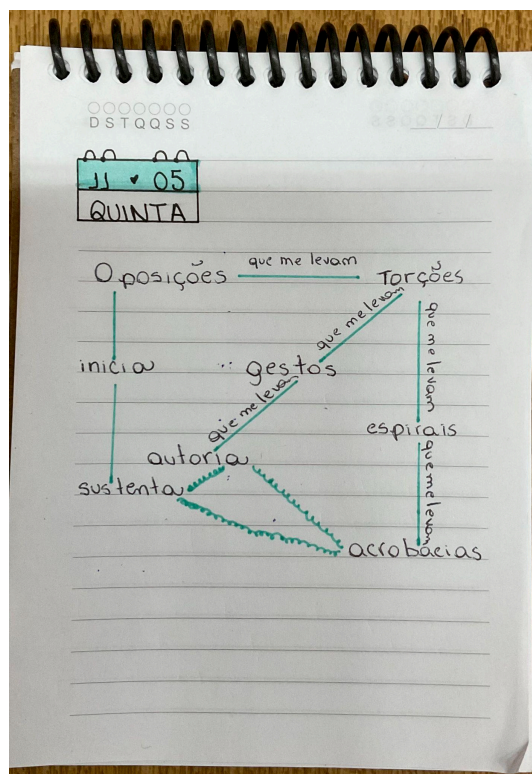 D S T Q Q S S
/ /
11 ♥ 05
QUINTA
Oposições que me levam Torções
que me levam
que me levam
inicia gestos
que me levam
espirais
autoria
que me levam
sustenta
acrobacias